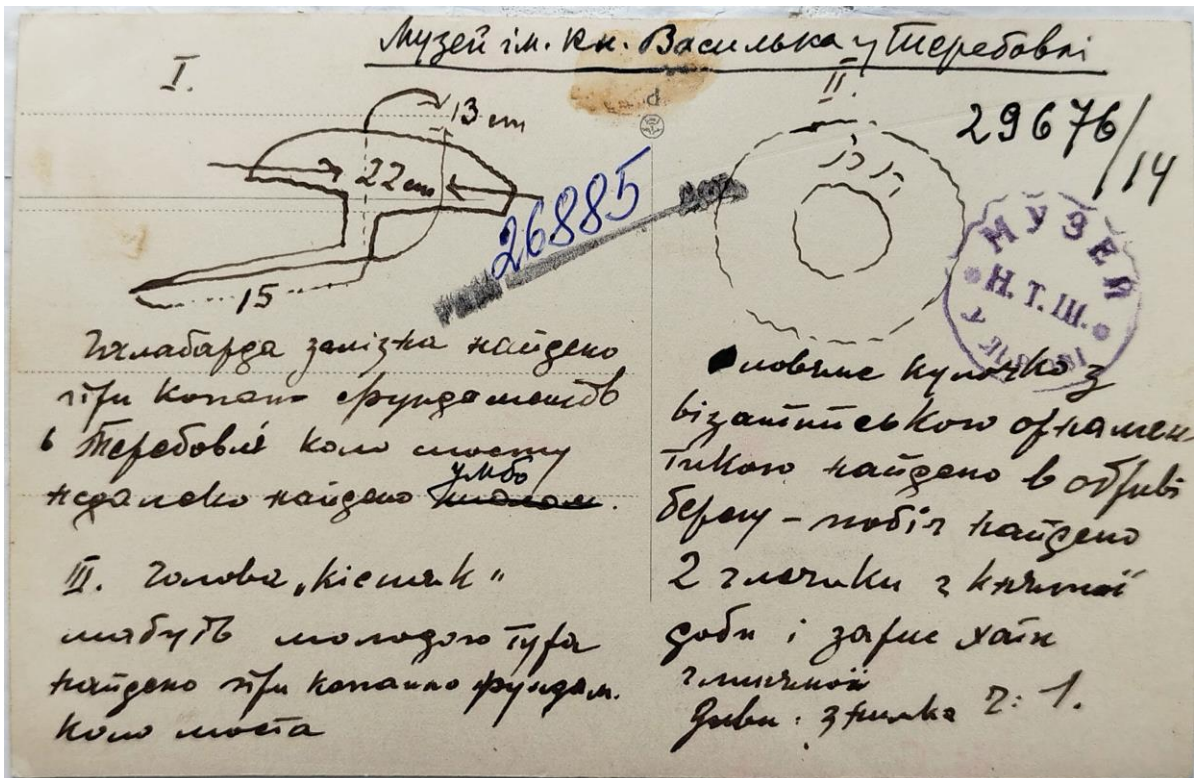 Музей ім. Кн. Василька у Теребовлі
I.
13 cm
22 cm
15
26885
Галабарда залізна найдено
при копаню фундаментів
в Теребовлі коло мосту
недалеко найдено умбо
III. Голова „кістяк"
мабуть молодого тура
найдено при копанню фундам.
коло моста
II.
29676/14
МУЗЕЙ
Н.Т.Ш.
У ЛЬВОВІ
кулочко з
візантийською орнамен
тикою найдено в обриві
берегу – побіч найдено
2 глечики з княжої
доби і зарис хати
глиняної
Диви: знимка ч: 1.